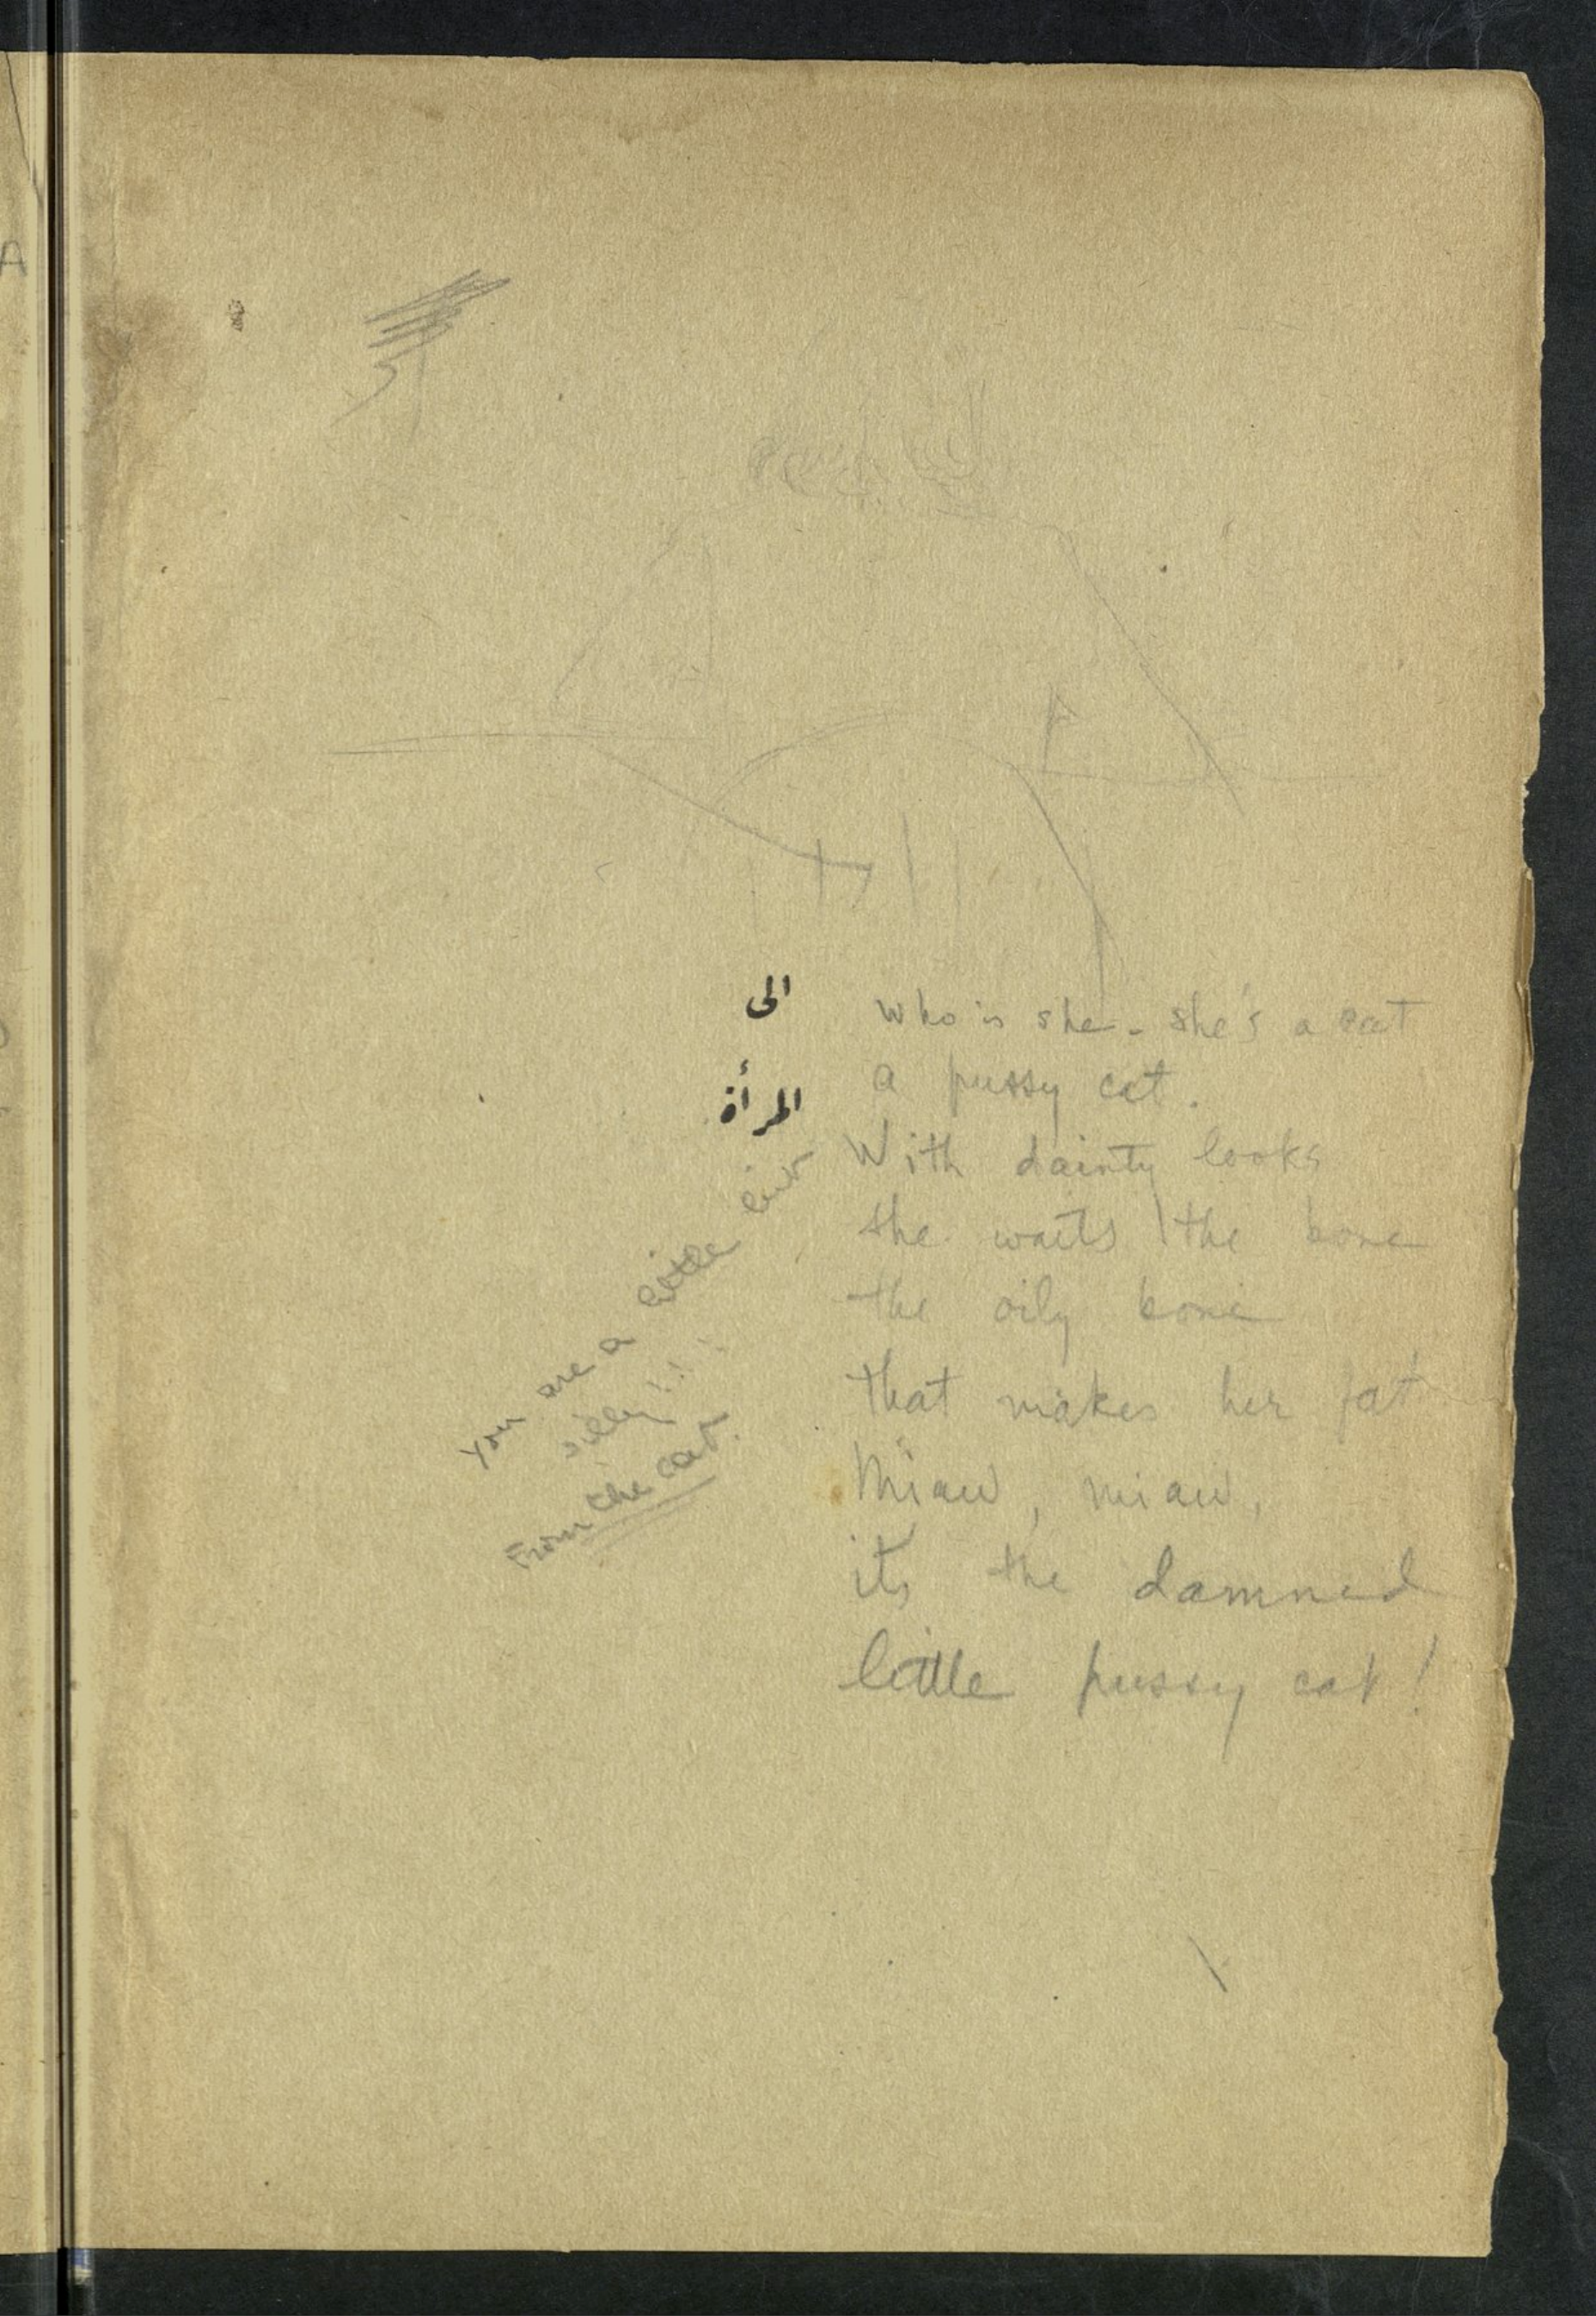 الى
المرأة
who is she - she's a cat
a pussy cat.
With dainty looks
she waits the bone
the oily bone
that makes her fat
Miaw, miaw,
its the damned
little pussy cat!
You are a little bit
silly!!!
From the cat.